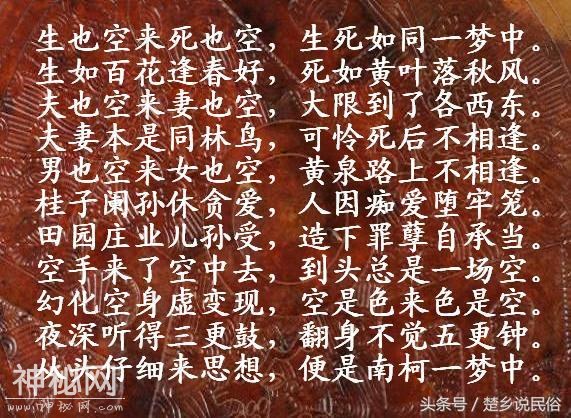 生也空来死也空，生死如同一梦中。
生如百花逢春好，死如黄叶落秋风。
夫也空来妻也空，大限到了各西东。
夫妻本是同林鸟，可怜死后不相逢。
男也空来女也空，黄泉路上不相逢。
桂子阑孙休贪爱，人因痴爱堕牢笼。
田园庄业儿孙受，造下罪孽自承当。
空手来了空中去，到头总是一场空。
幻化空身虚变现，空是色来色是空。
夜深听得三更鼓，翻身不觉五更钟。
从头仔细来思想，便是南柯一梦中。
神秘网
www.神秘网.com
头条号／楚乡说民俗